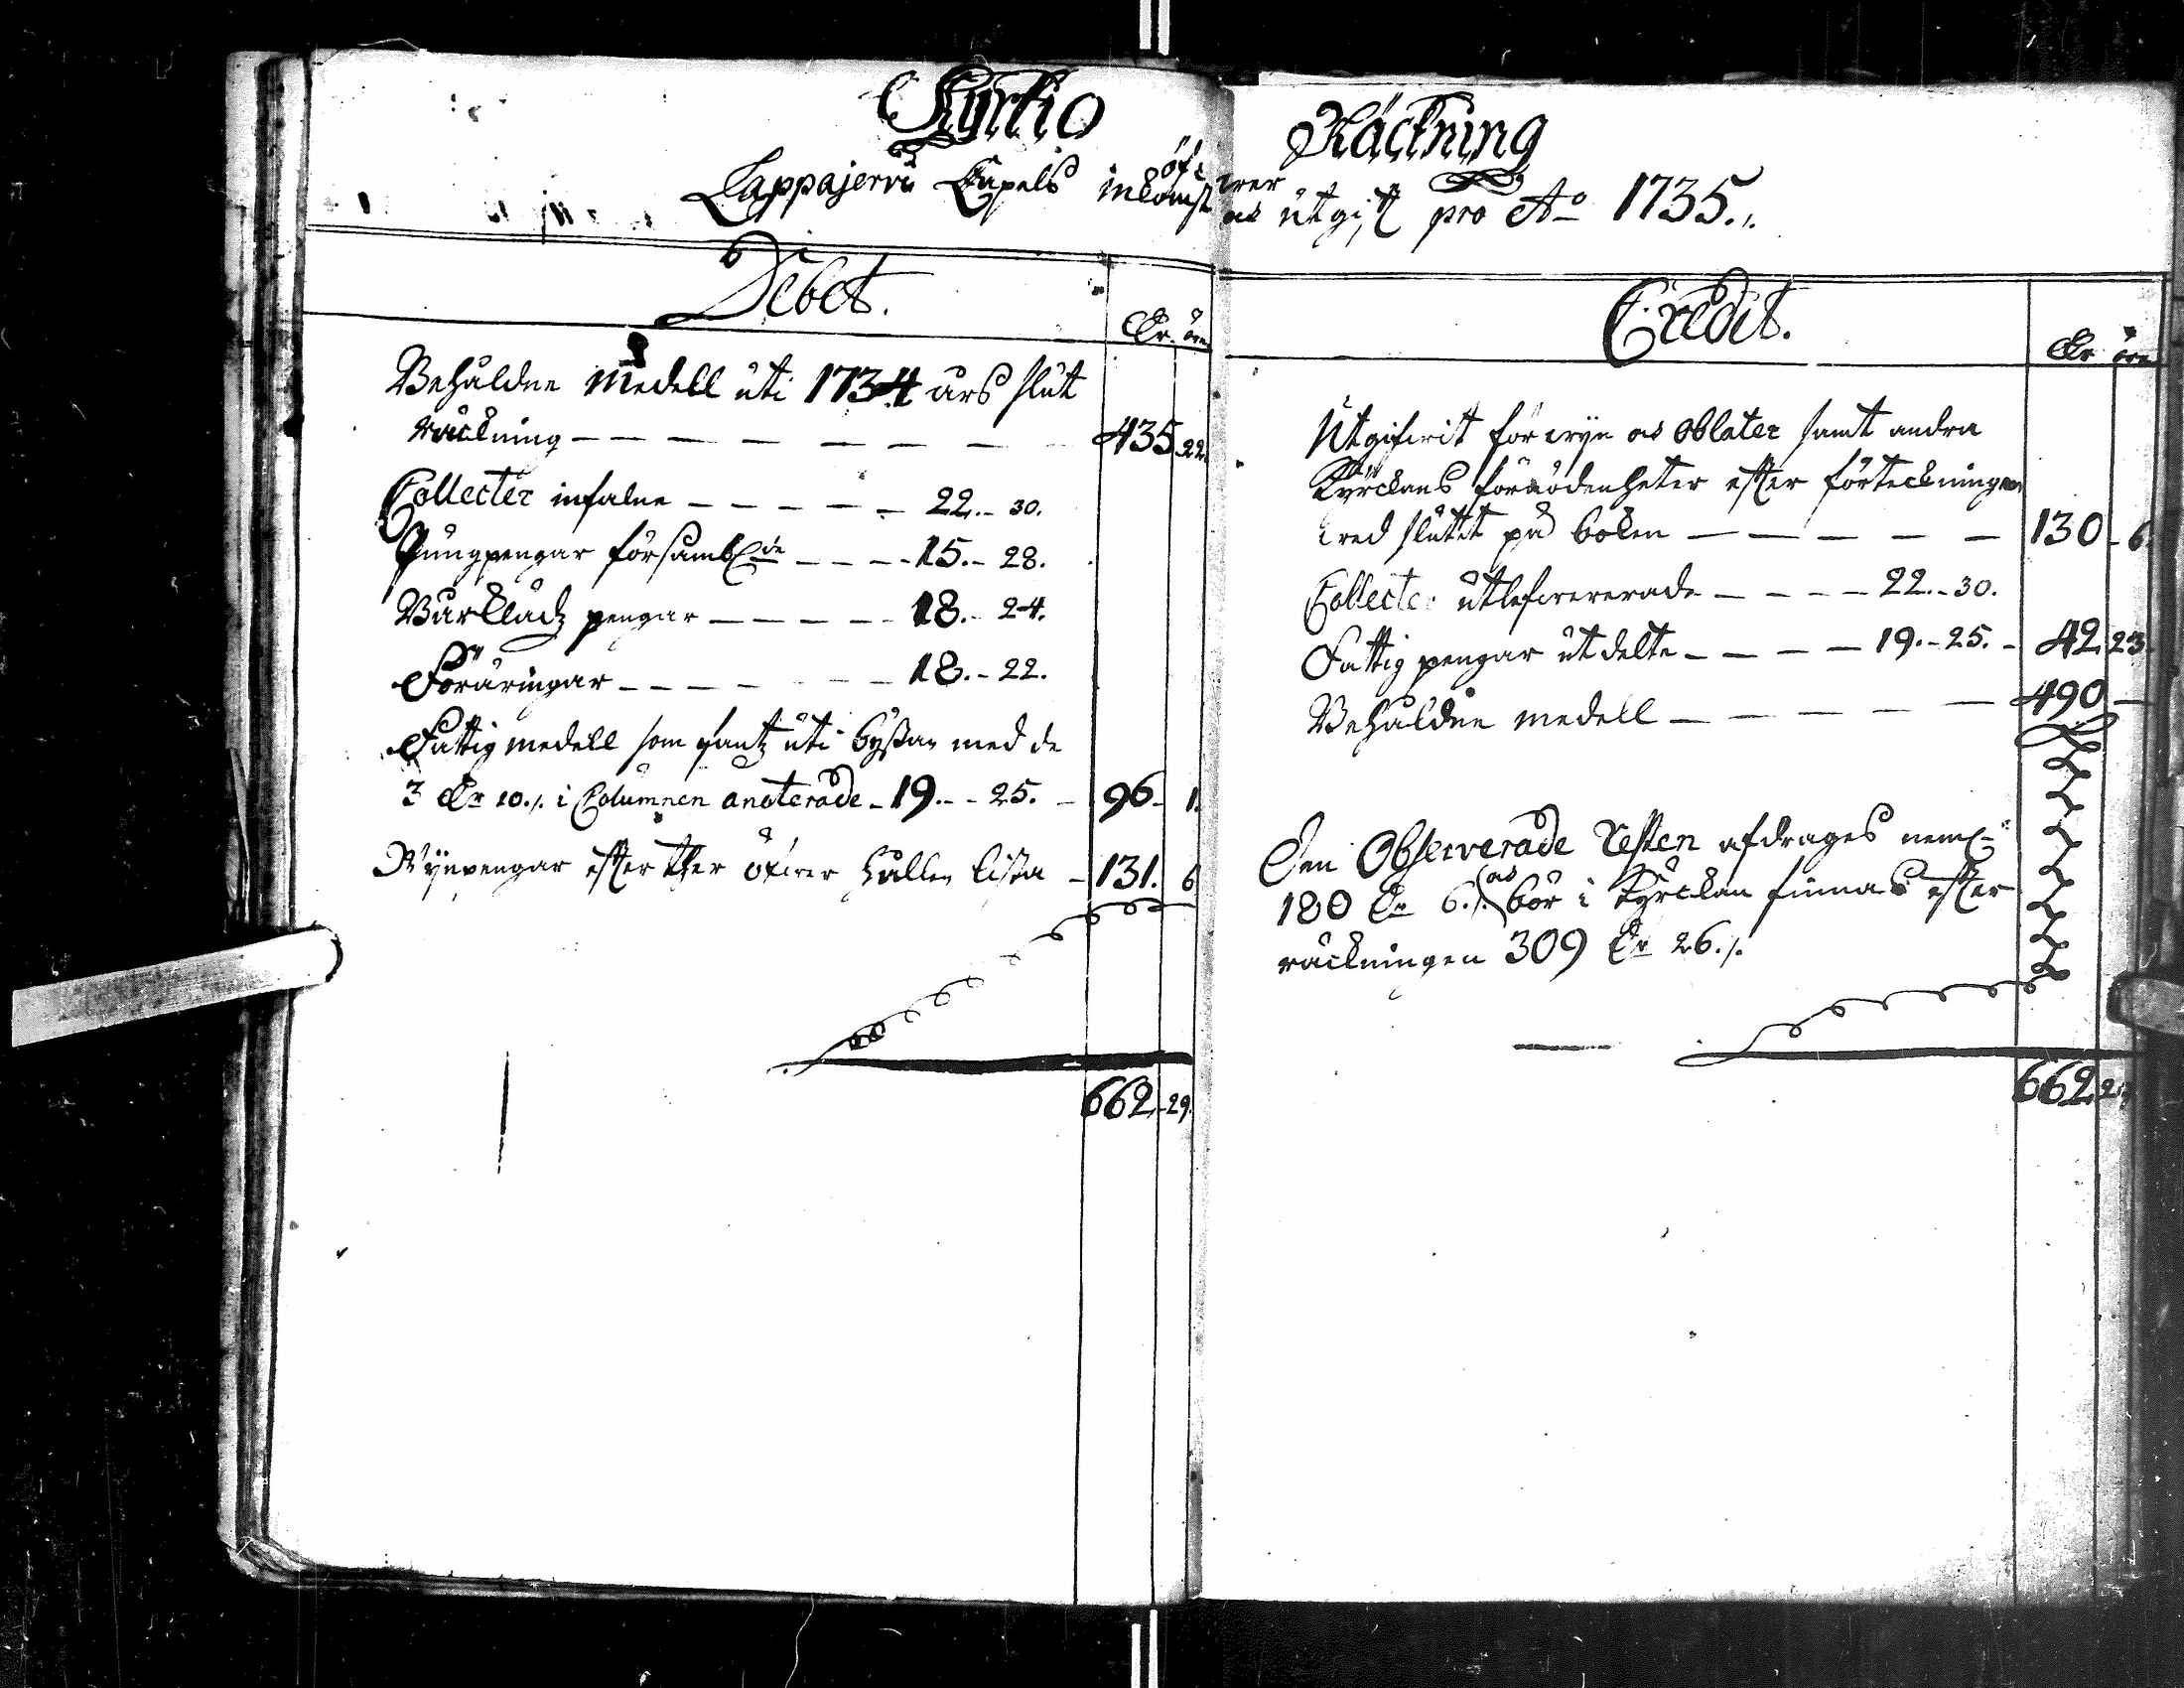 Kyrkio Räckning
öfwer
Lappajerwi Capels inkomst och utgift pro Ao 1735.
Debet.
Dlr öre
Behåldne Medell uti 1734 års slut
räckning — — — — — — — 435. 22.
Collecter infalne — — — — — 22. 30.
Pungpengar församblde — — — 15. 28.
Bårklädz pengar — — — — — 18. 24.
Föräringar — — — — — — 18. 22.
Fattig medell som fantz uti bössan med de
3 Dlr 10./. i Columnen anoterade — 19. 25. — 96. 1.
Wynpengar efter ther öfwer hållen lista — 131. 6
662. 29.
Credit.
Dlr öre
Utgifwit för wyn och Oblater samt andra
Kyrckans förnödenheter efter förteckningen
wed slutet på boken — — — — — 130. 6.
Collecter utlefwererade — — — — 22. 30.
Fattig pengar utdelte — — — — 19. 25. — 42. 23.
Behåldne medell — — — — — 490 —
Den Observerade resten afdrages neml.
180 Dlr 6./. och bör i Kyrckan finnas efter
räckningen 309 Dlr 26./.
662. 29